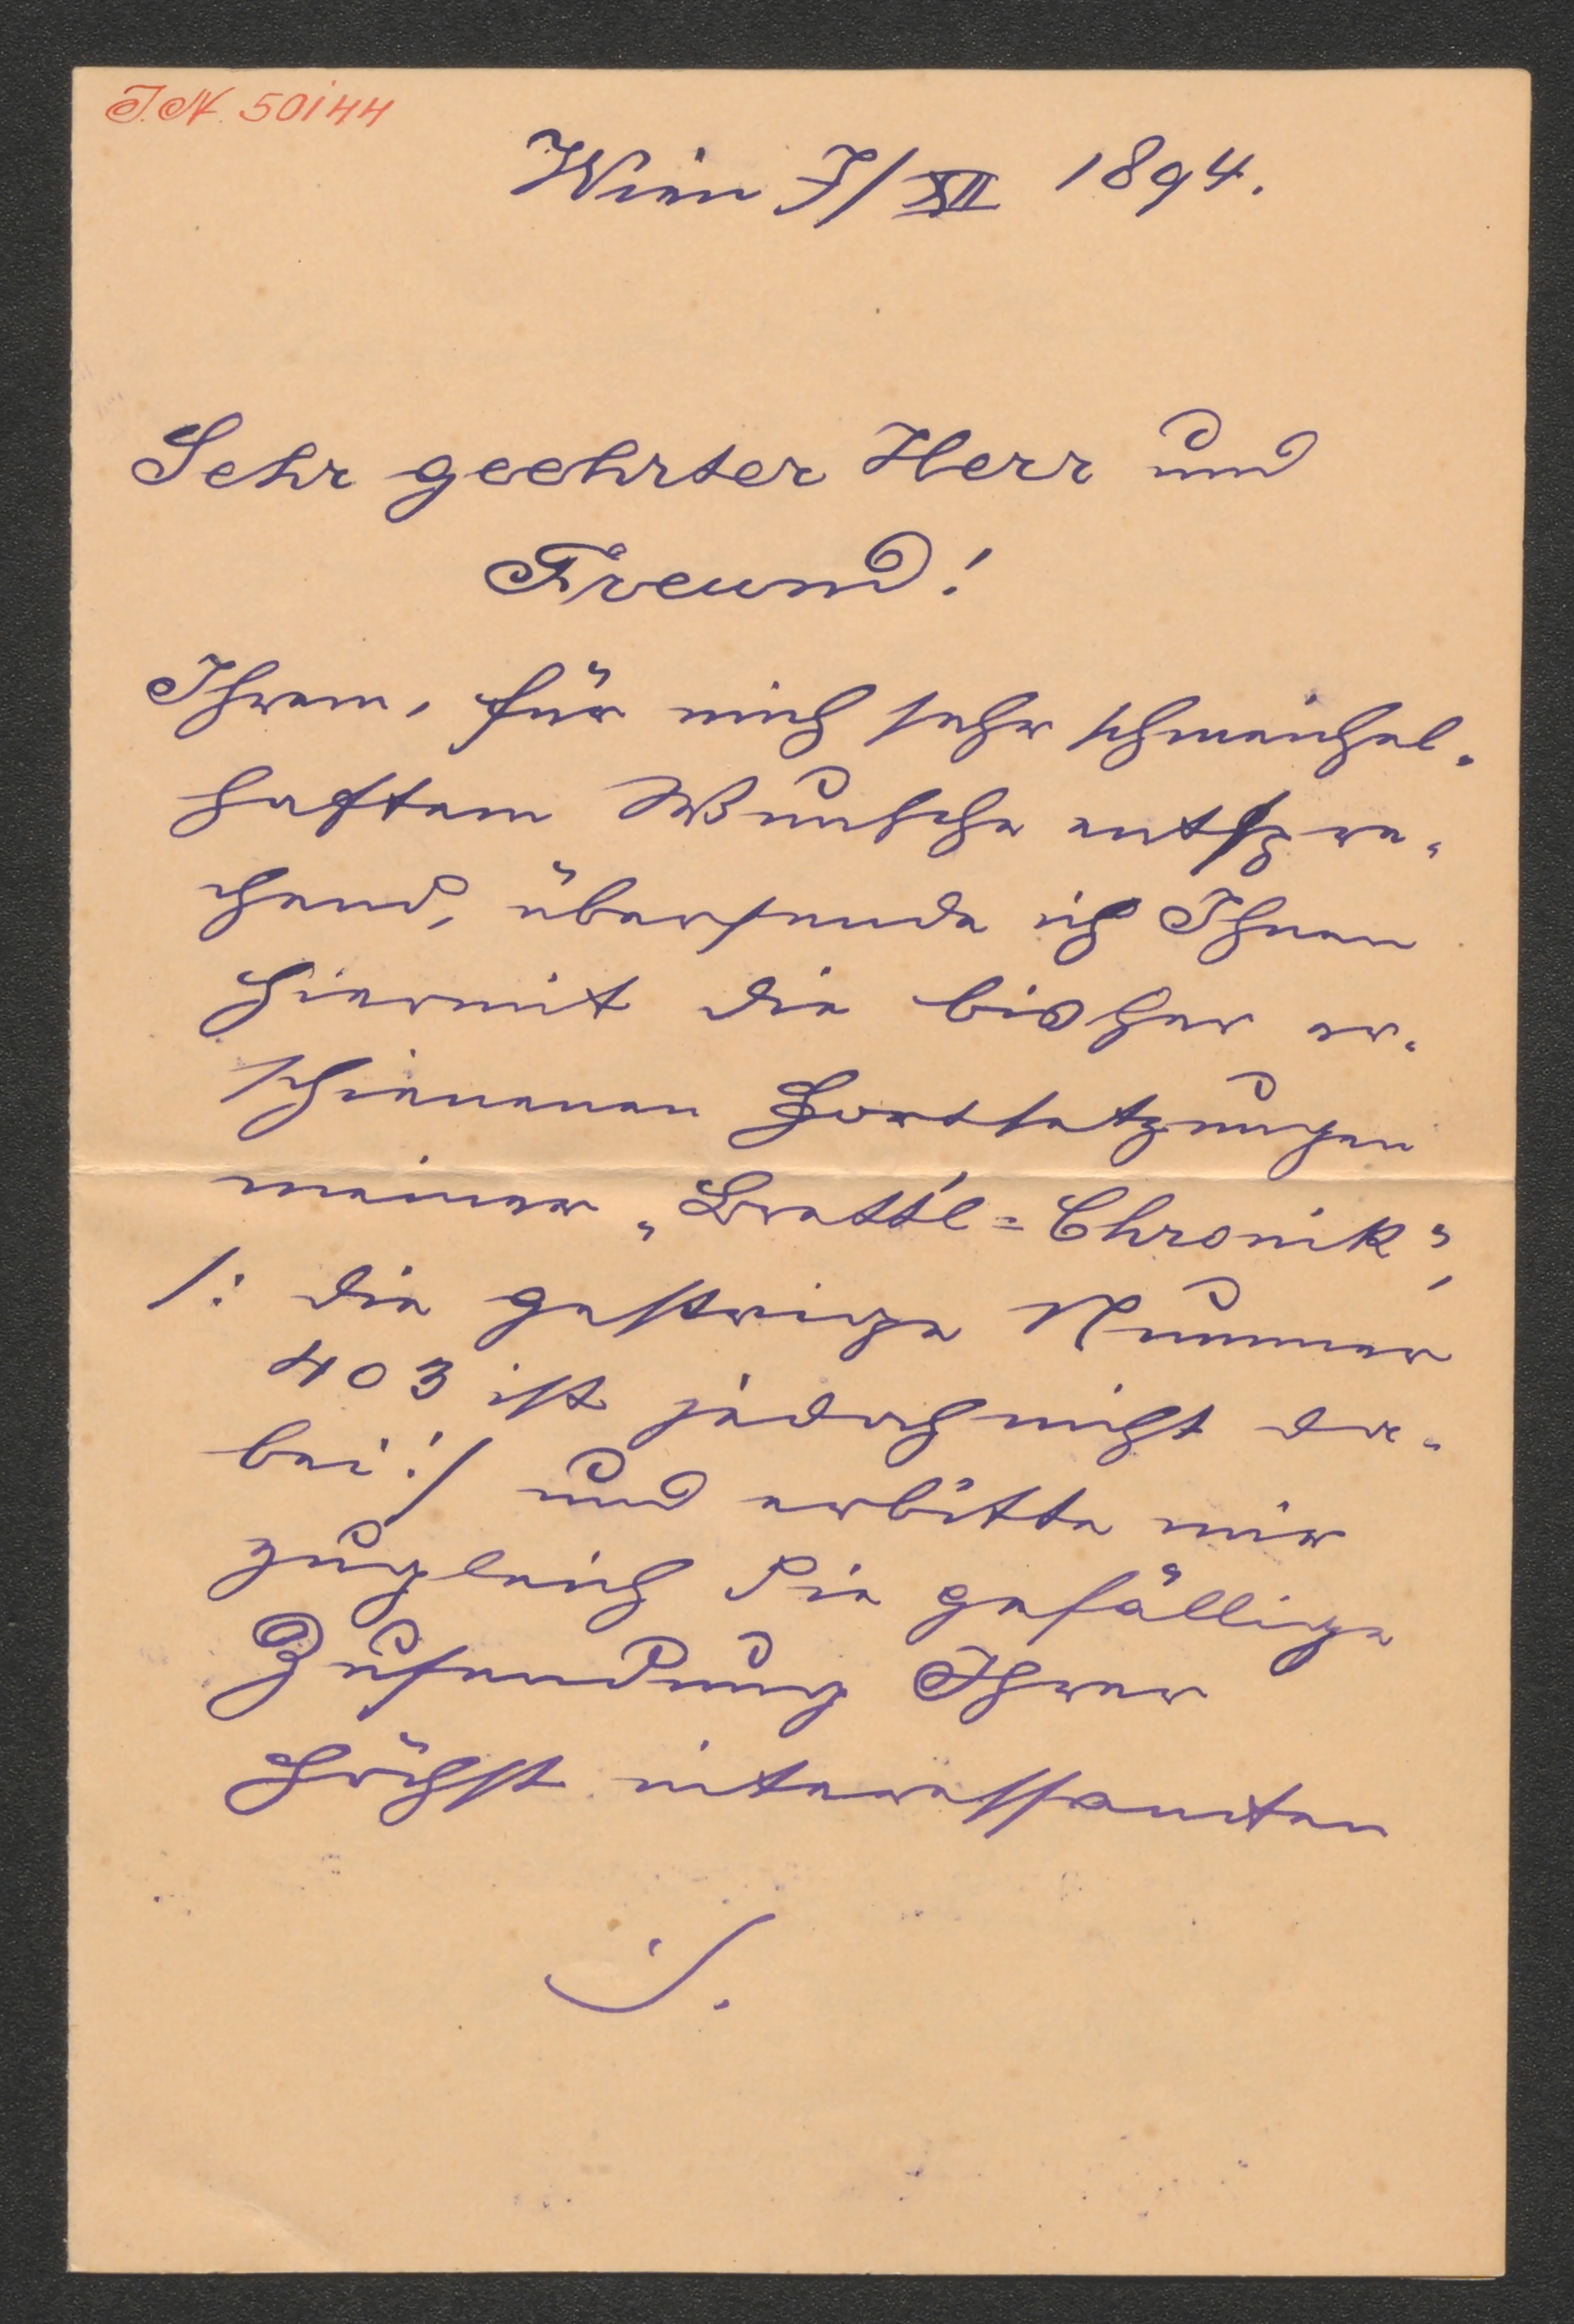 I.N. 50144
Wien 7/XII 1894.
Sehr geehrter Herr und
Freund!
Ihrem, für mich sehr schmeichel-
haftem Wunsche entspre-
chend, übersende ich Ihnen
hiermit die bisher er-
schienenen Fortsetzungen
meiner „Brettl=Chronik",
/: die gestrige Nummer
403 ist jedoch nicht da-
bei :/ und erbitte mir
zugleich die gefällige
Zusendung Ihrer
höchst interessanten